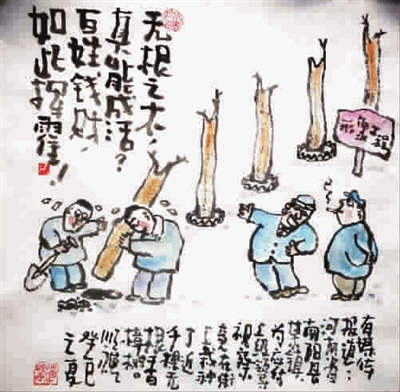 无根之木，
真能成活？
百姓钱财
如此挥霍！
形象工程
有媒体
报道：
河南省
南阳
为应付
上级领导
视察
竟在街
上栽种
了近
千棵无
根香
樟树
癸巳
之夏